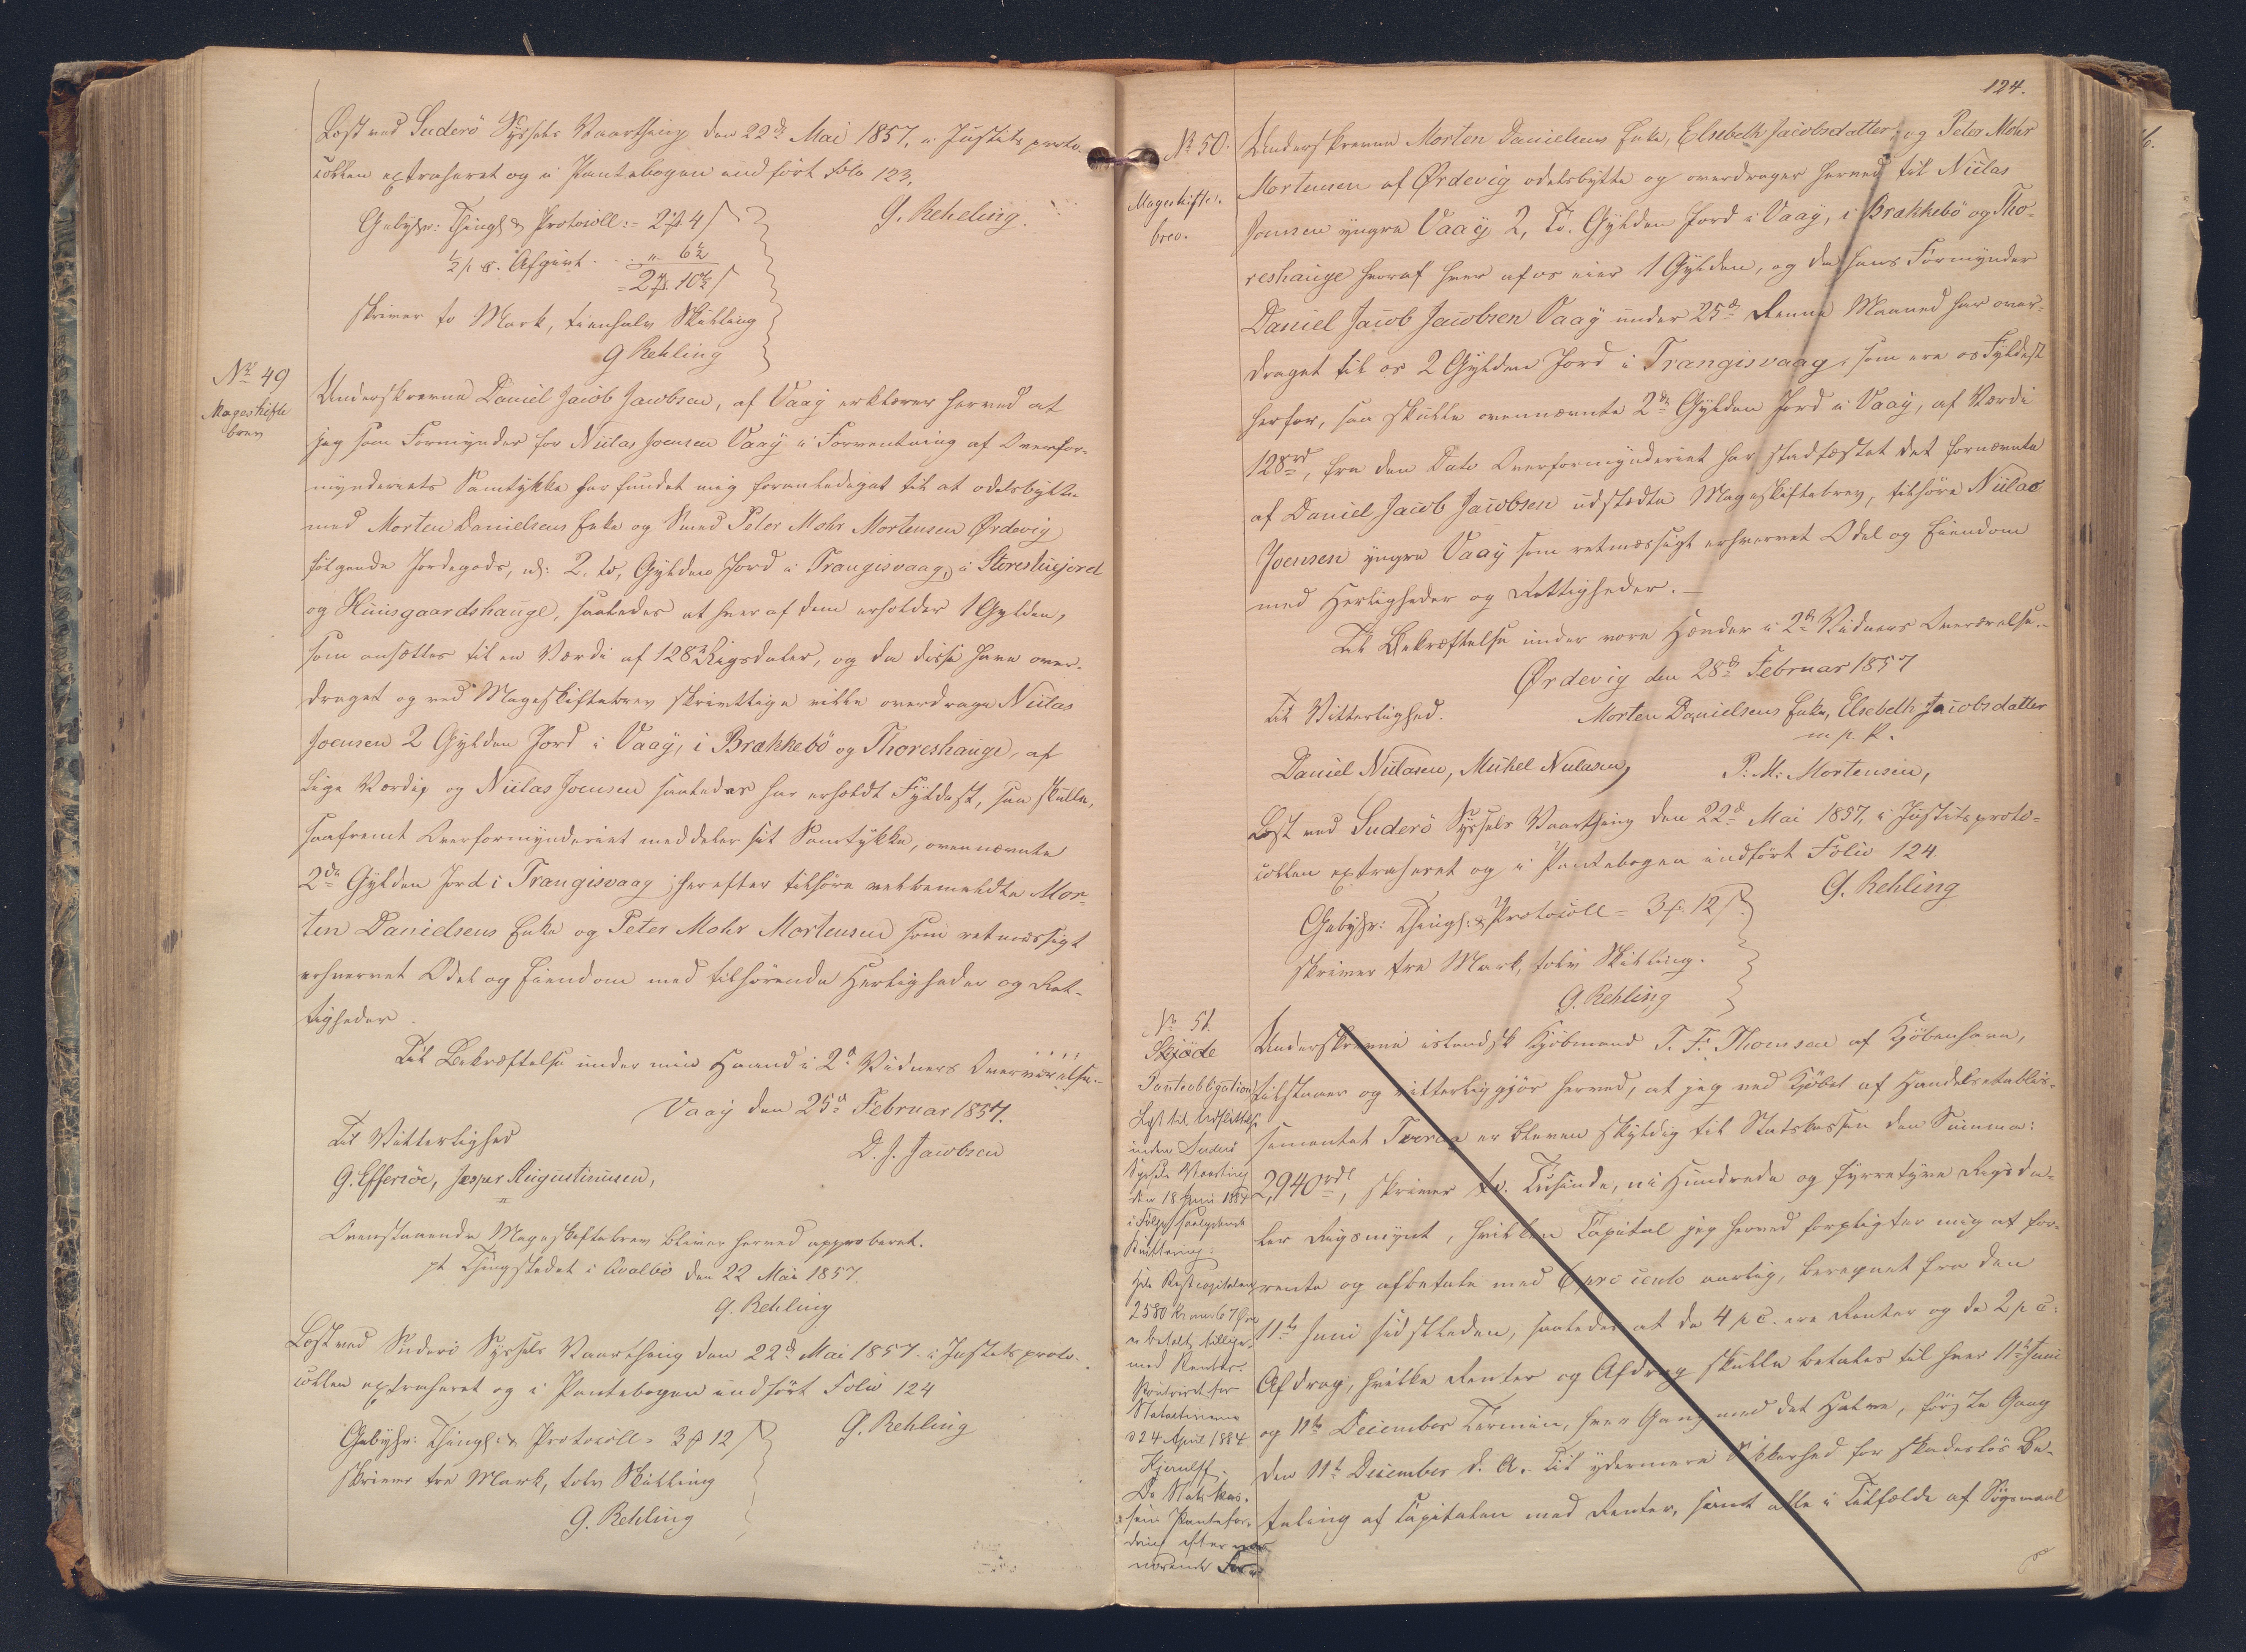 Læst ved Suderö Syssels Vaarthing den 22de Mai 1857, i Justitsproto-
collen extraheret og i Pantebogen indført Folio 123.
G. Rehling.
Gebyhr: Thingl. & Protocoll: = 2 ℔ 4 ß
½ p. c. Afgivt . . . " 6½
= 2 ℔ 10½ ß
skriver to Mark, tienhalv Skilling
G Rehling
No 49
Mageskifte
brev
Underskrevne Daniel Jacob Jacobsen, af Vaag erklærer herved at
jeg som Formynder for Niclas Joensen Vaag i Forventning af Overfor-
mynderiets Samtykke har fundet mig foranlediget til at odelsbytte
med Morten Danielsens Enke og Smed Peter Mohr Mortensen Ørdevig
følgende Jordegods, nl: 2, to, Gylden Jord i Trangisvaag, i Storestuejord
og Huusgaardshauge, saaledes at hver af dem erholder 1 Gylden,
som ansættes til en Værdi af 128 Rigsdaler, og da disse have over-
draget og ved Mageskiftebrev skrivtlige ville overdrage Niclas
Joensen 2 Gylden Jord i Vaag, i Brækkebö og Thoreshauge, af
lige Værdi, og Niclas Joensen saaledes har erholdt Fyldest, saa skulle,
saafremt Overformynderiet meddeler sit Samtykke, ovennævnte
2de Gylden Jord i Trangisvaag herefter tilhøre velbemeldte Mor-
ten Danielsens Enke og Peter Mohr Mortensen som retmæssigt
erhvervet Odel og Eiendom med tilhørende Herligheder og Ret-
tigheder.
Til Bekræftelse under min Haand i 2de Vidners Overværelse.
Vaag den 25de Februar 1857.
Til Vitterlighed
D. J. Jacobsen
G. Effersøe, Jesper Augustinusen,
Ovenstaaende Mageskiftebrev bliver herved approberet.
pt Thingstedet i Qvalbö den 22 Mai 1857.
G. Rehling
Læst ved Suderö Syssels Vaarthing den 22de Mai 1857 i Justitsproto-
collen extraheret og i Pantebogen indført Folio 124
G. Rehling
Gebyhr: Thingl. & Protocoll = 3 ℔ 12 ß
skriver tre Mark, tolv Skilling
G. Rehling
124.
No 50.
Mageskifte-
brev.
Underskrevne Morten Danielsens Enke, Elsebeth Jacobsdatter, og Peter Mohr
Mortensen af Ørdevig odelsbytte og overdrager herved til Niclas
Joensen yngre Vaag 2, to Gylden Jord i Vaag, i Brækkebö og Tho-
reshauge hvoraf hver af os eier 1 Gylden, og da hans Formynder
Daniel Jacob Jacobsen Vaag under 25de denne Maaned har over-
draget til os 2 Gylden Jord i Trangisvaag, som ere os Fyldest
herfor, saa skulle ovennævnte 2de Gylden Jord i Vaag, af Værdi
128rd, fra den Dato Overformynderiet har stadfæstet det fornævnte
af Daniel Jacob Jacobsen udstedte Mageskiftebrev, tilhøre Niclas
Joensen yngre Vaag som retmæssigt erhvervet Odel og Eiendom
med Herligheder og Rettigheder.—
Til Bekræftelse under vore Hænder i 2de Vidners Overværelse.-
Ørdevig den 28de Februar 1857
Til Vitterlighed.
Morten Danielsens Enke, Elsebeth Jacobsdatter
m. p. P.
Daniel Niclasen, Michel Niclasen,
P. M. Mortensen,
Læst ved Suderö Syssels Vaarthing den 22de Mai 1857, i Justitsproto-
collen extraheret og i Pantebogen indført Folio 124.
G. Rehling
Gebyhr: Thingl: & Protocoll = 3 ℔ 12 ß
skriver tre Mark, tolv Skilling.
G. Rehling
No 51.
Skjöde
Panteobligation
Læst til Udslettelse
inden Suderö
Syssels Vaarting
den 18 Juni 1884
i Følge saalydende
Kvittering:
Hele Restcapitalen
2580 Kroner 67 Øre
er betalt tillige
med Renter.
Kontoiret for
Statsactiverne
d 24 April 1884
De Statskas-
sens Pantefor-
dring efter nær-
værende For-
Underskrevne islandsk Kjöbmand T. F. Thomsen af Kjöbenhavn,
tilstaaer og vitterliggjör herved, at jeg ved Kjöbet af Handelsetablis-
sementet Tveraa er bleven skyldig til Statskassen den Summa:
2,940rdl, skriver to Tusinde, ni Hundrede og fyrretyve Rigsda-
ler Rigsmynt, hvilken Capital jeg herved forpligter mig at for-
rente og afbetale med 6 pro cento aarlig, beregnet fra den
11te Juni sidstleden, saaledes at de 4 p C. ere Renter og de 2 p c:
Afdrag, hvilke Renter og Afdrag skulle betales til hver 11te Juni
og 11te December Termin, hver Gang med det Halve, förste Gang
den 11te December d. A. Til ydermere Sikkerhed for skadeslös Be-
taling af Capitalen med Renter, samt alle i Tilfælde af Sögsmaal